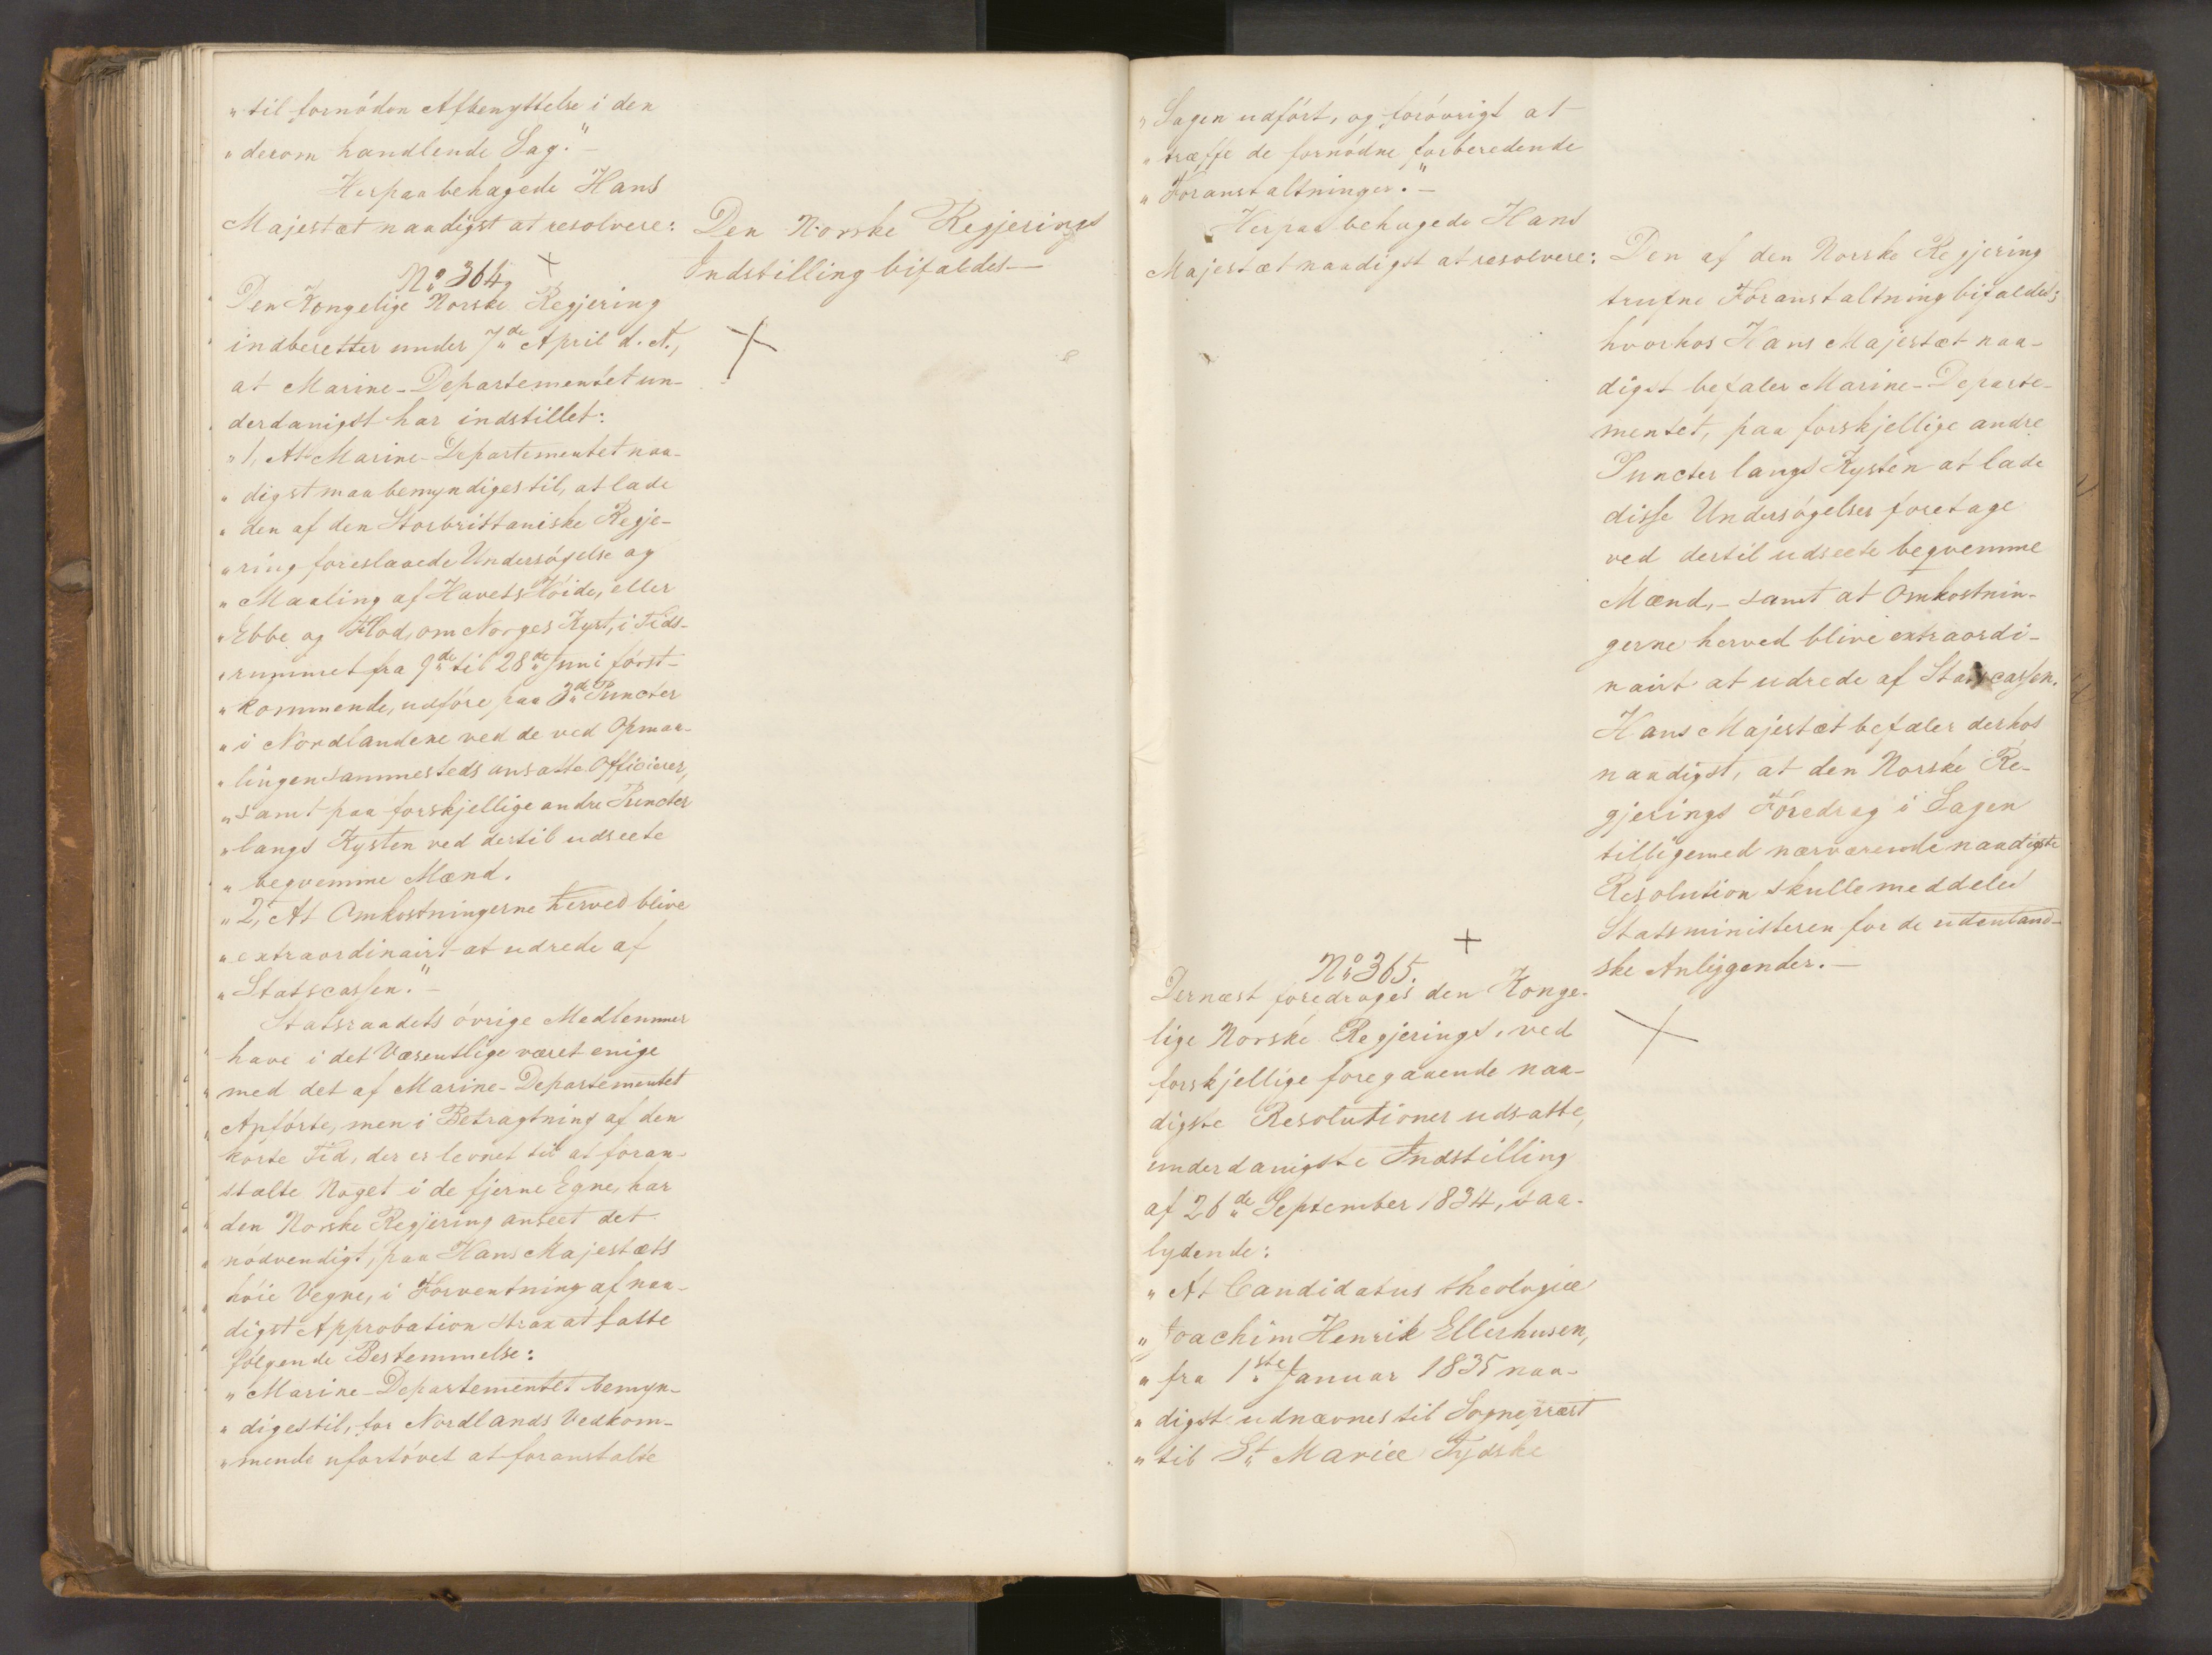 "til fornöden Afbenyttelse i den
"derom handlende Sag." –
Herpaa behagede Hans
Majestæt naadigst at resolvere:
Den Norske Regjerings
Indstilling bifaldes –
No 364,
Den Kongelige Norske Regjering
indberetter under 7de April d. A.,
at Marine-Departementet un-
derdanigst har indstillet:
"1, At Marine-Departementet naa-
"digst maa bemyndiges til, at lade
"den af den Storbrittaniske Regje-
"ring foreslaaede Undersögelse og
"Maaling af Havets Höide, eller
"Ebbe og Flod, om Norges Kyst, i Tids-
"rummet fra 9de til 28de Juni först-
"kommende, udföre paa 3de Puncter
"i Nordlandene ved de ved Opmaa-
"lingen sammesteds ansatte Officierer,
"samt paa forskjellige andre Puncter
"langs Kysten ved dertil udseete
"beqvemme Mænd.
"2, At Omkostningerne herved blive
"extraordinairt at udrede af
"Statscassen." –
Statsraadets övrige Medlemmer
have i det Væsentlige været enige
med det af Marine-Departementet
Anförte, men i Betragtning af den
korte Tid, der er levnet til at foran-
stalte Noget i de fjerne Egne, har
den Norske Regjering anseet det
nödvendigt, paa Hans Majestæts
höie Vegne, i Forventning af naa-
digst Approbation strax at fatte
fölgende Bestemmelse:
"Marine-Departementet bemyn-
"diges til, for Nordlands Vedkom-
"mende ufortövet at foranstalte
"Sagen udfört, og foróvrigt at
"træffe de fornödne forberedende
"Foranstaltninger." –
Herpaa behagede Hans
Majestæt naadigst at resolvere:
Den af den Norske Regjering
trufne Foranstaltning bifaldes;
hvorhos Hans Majestæt naa-
digst befaler Marine-Departe-
mentet, paa forskjellige andre
Puncter langs Kysten at lade
disse Undersögelser foretage
ved dertil udseete beqvemme
Mænd, – samt at Omkostnin-
gerne herved blive extraordi-
nairt at udrede af Statscassen.
Hans Majestæt befaler derhos
naadigst, at den Norske Re-
gjerings Foredrag i Sagen
tilligemed nærværende naadigste
Resolution skulle meddeles
Statsministeren for de udenland-
ske Anliggender. –
No 365.
Dernæst foredroges den Konge-
lige Norske Regjerings, ved
forskjellige foregaaende naa-
digste Resolutioner udsatte,
underdanigste Indstilling
af 26de September 1834, saa-
lydende:
"At Candidatus theologiæ
"Joachim Henrik Ellerhusen,
"fra 1ste Januar 1835 naa-
"digst udnævnes til Sognepræst
"til St Mariæ Tydske